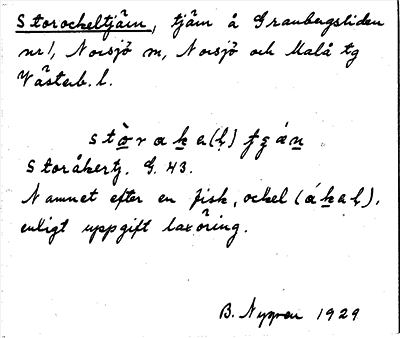 Storockeltjärn, tjärn å Granbergsliden
nr 1, Norsjö sn, Norsjö och Malå tg
Västerb. l.
stòrake(l) tjä́n
Storåkertj. G. 43.
Namnet efter en fisk, ockel (åkal),
enligt uppgift laxöring.
B. Nygren 1929